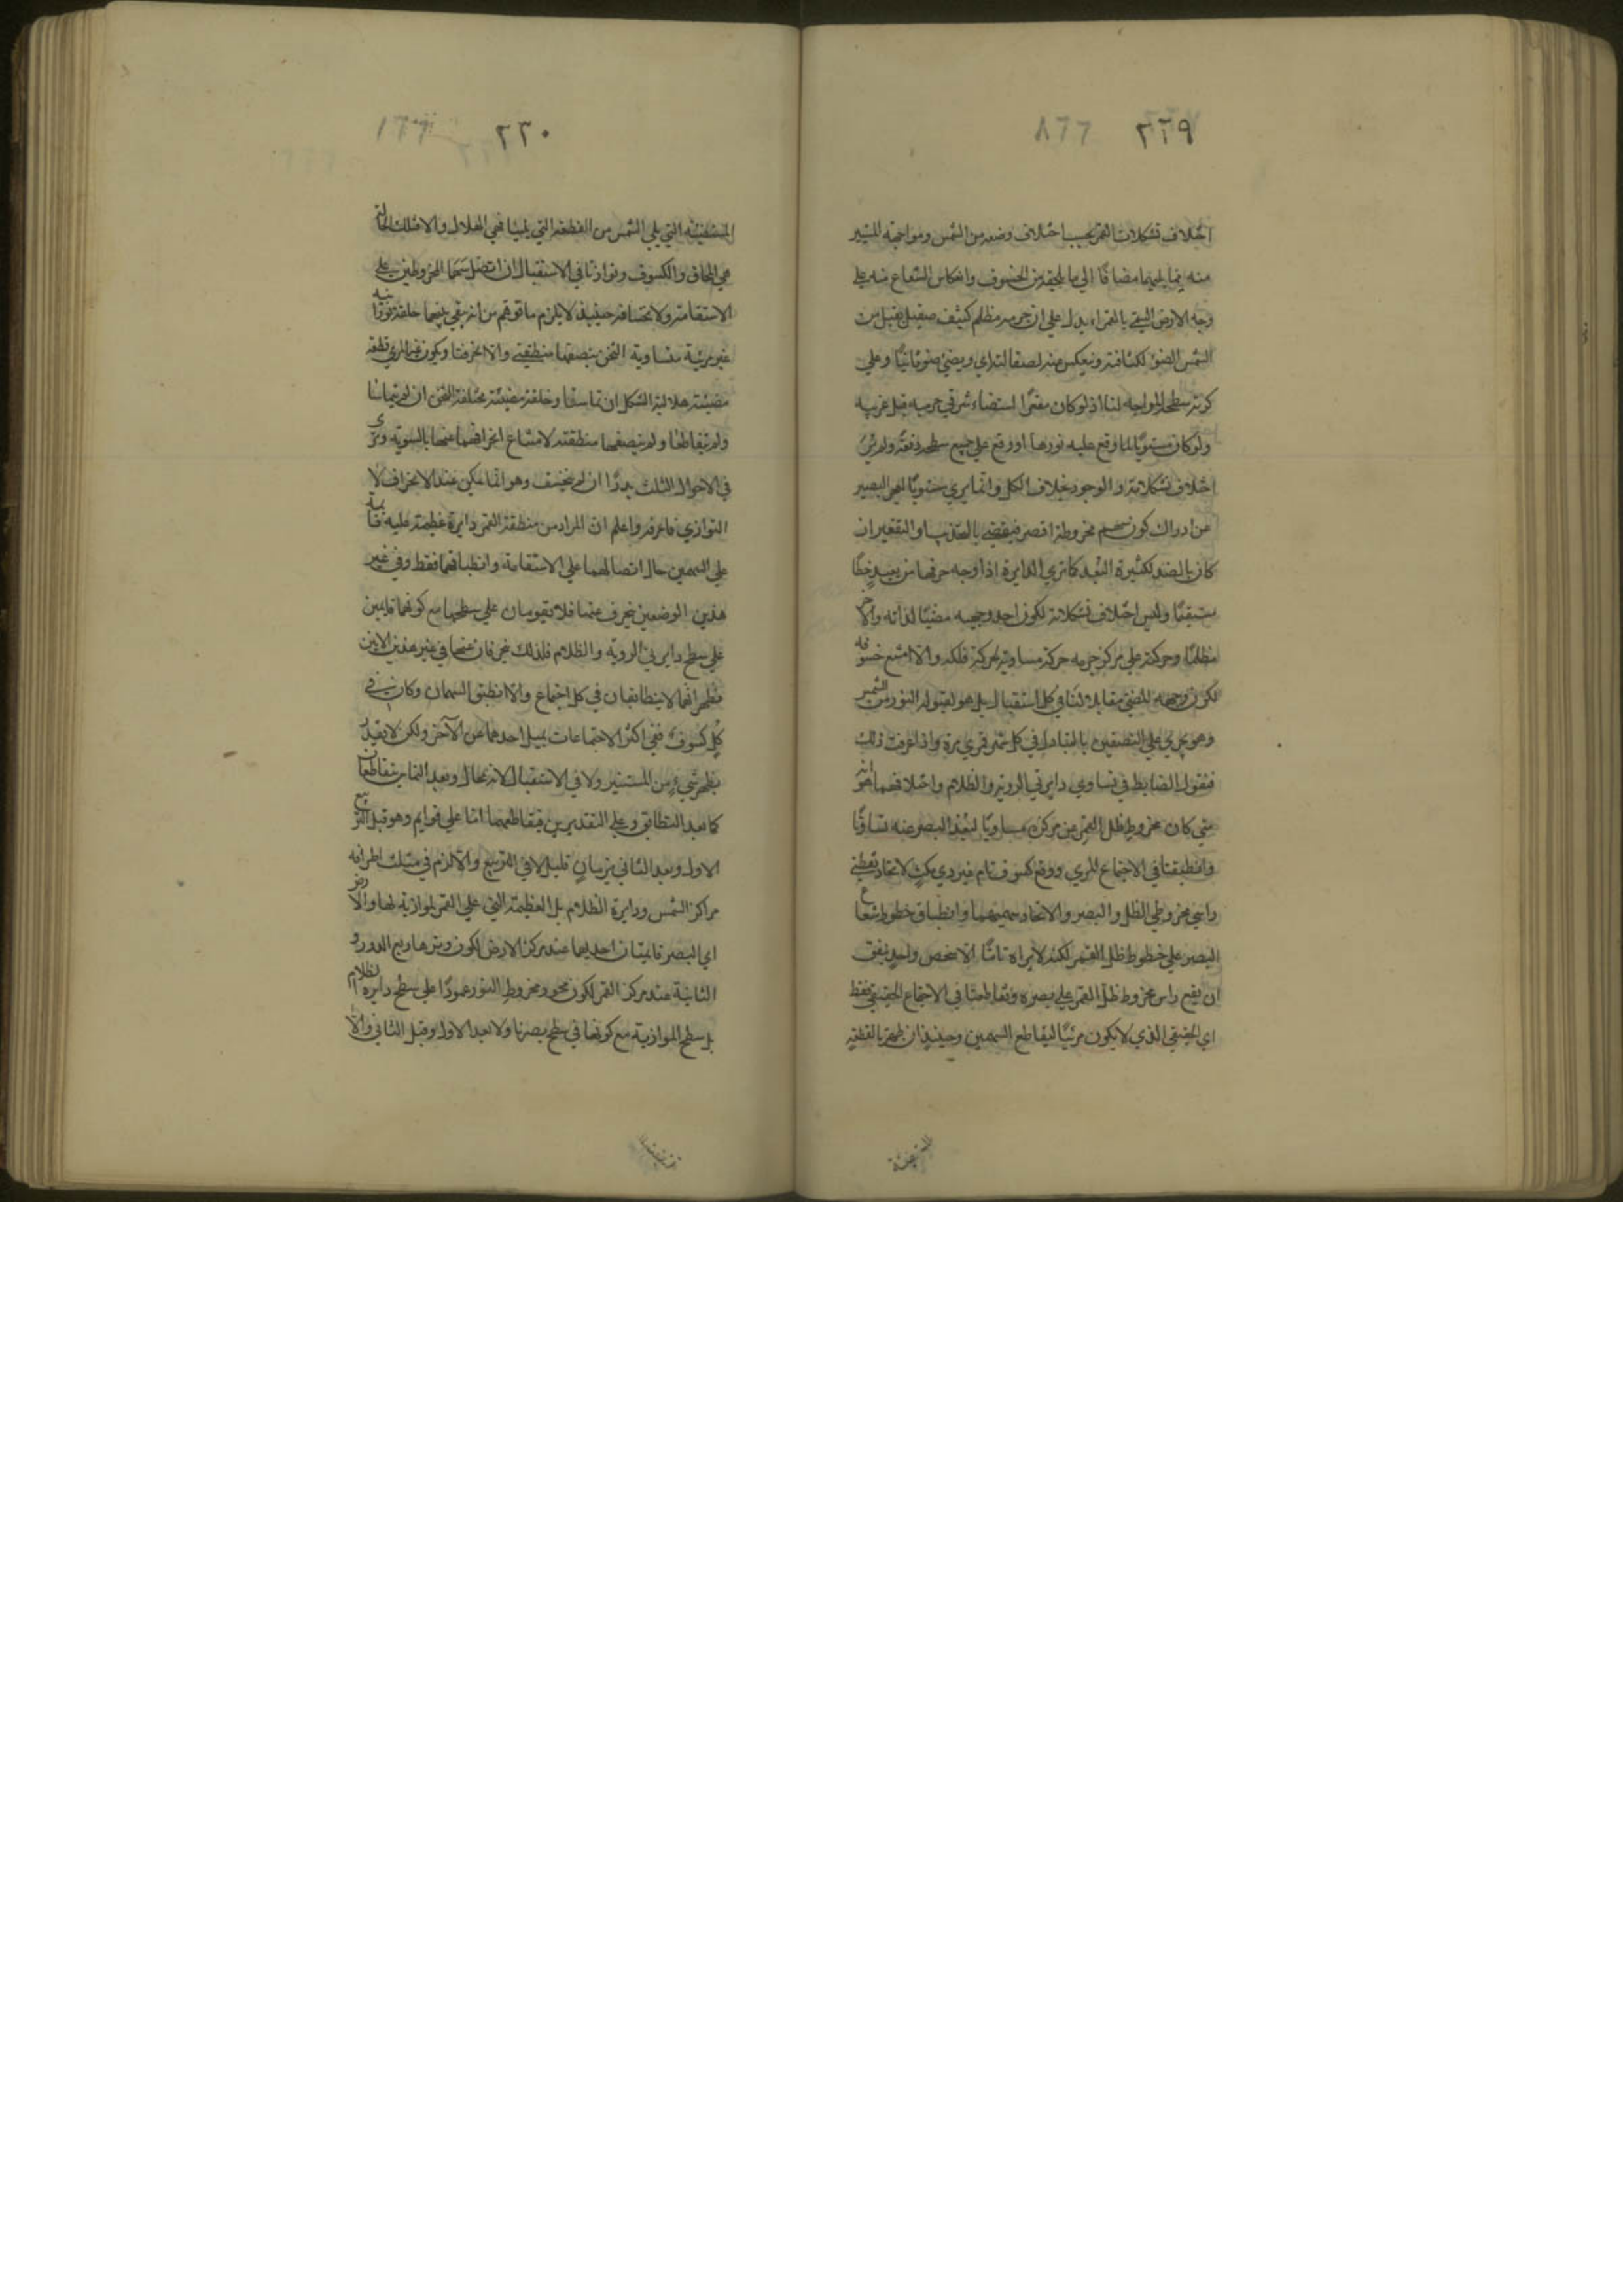 ٢٢٩
اختلاف تشكلات القمر بحسب اختلاف وضعه من الشمس ومواجهة المستنير
منه لنا يليهما مضافًا الي ما يلحقه من الخسوف وانعكاس الشعاع منه علي
وجه الارض بالقمراء يدل علي ان جرمه مظلم كثيف صقيل يقبل من
الشمس الضوء لكثافته وينعكس منه لصقالته اي ويضئ ضوءًا ثانيًا وعلي
كرية سطحه المواجه لنا اذ لو كان مقعرًا استضاء شرقي جرمه قبل غربيه
ولو كان مستويًا لما وقع عليه نورها او وقع علي جميع سطحه دفعةً ولم تر
اختلاف تشكلاته والوجود بخلاف الكل وانما يري مستويًا لعجز البصر
عن ادراك كون سهم مخروطه اقصر فيقضي بالتحدب او التقعير ان
كان بالضد لكثرة البعد كما تري الدايرة اذا اوجه حرفها من بعيد خطًا
مستقيمًا وليس اختلاف تشكلاته لكون احد وجهيه مضيئًا لذاته والاخر
مظلمًا وحركته علي مركز جرمه حركة مساوية لحركة فلكه والا امتنع خسوفه
لكون وجهه المضئ مقابلا لنا في كل استقبال بل هو لقبوله النور من الشمس
وهو يجري علي النصفين بالتبادل في كل شهر قمري مرة واذا عرفت ذلك
فنقول الضابط في تساوي دايرتي الروية والظلام واختلافهما هو انه
متي كان مخروط ظل القمر عن مركزه مساويًا لبعد البصر عنه تساوتا
وانطبقتا في الاجتماع المري ووقع كسوف تام غير ذي مكث لاتحاد نقطتي
راسي مخروطي الظل والبصر والاتحاد سهميهما وانطباق خطوط شعاع
البصر علي خطوط ظل القمر لكنه لا يراه تامًا الا شخص واحد يتفق
ان يقع راس مخروط ظل القمر علي بصره وتقاطعتا في الاجتماع الحقيقي فقط
اي الحقيقي الذي لا يكون مرئيًا ليقاطع السهمين وحينئذ ان ظهر بالقطعة
٢٣٠
المستضيئة التي يلي الشمس من القطعة التي يلينا فهي الهلال والا فتلك الحالة
هي المحاق والكسوف وتوازتا في الاستقبال ان اتصل سهما المخروطين علي
الاستقامة ولا يخسفانه حينئذ لا يلزم ما توهم من انه يبقي بينهما حلقة نورانية
غير مرئية متساوية الثخن ينصفها منطقتي والا انحرفتا ويكون غير المري قطعة
مضيئة هلالية الشكل ان تماستا وحلقة مضيئة مختلفة الثخن ان لم تتماسا
ولم تتقاطعا ولم ينصفها منطقته لامتناع انحرافهما عنها بالسوية ويري
في الاحوال الثلث بدرًا ان لم ينخسف وهو انما يمكن عند الانحراف لا
التوازي فاعرفه واعلم ان المراد من منطقة القمر دايرة عظيمة عليه قائمة
علي السهمين حال اتصالهما علي الاستقامة وانطباقهما فقط وفي غير
هذين الوضعين ينحرف عنها فلا يقومان علي سطحها مع كونهما قايمين
علي سطح دايرتي الروية والظلام فلذلك ينحرفان عنها في غير هذين الاين
فظهر انهما لا ينطابقان في كل اجتماع والا انطبق السهمان وكان في
كل كسوف ففي اكثر الاجتماعات يميل احدهما عن الآخر ولكن لا بقدر
يظهر شيء من المستنير ولا في الاستقبال لانه محال وبعد التماس يتقاطعان
كما بعد التطابق وعلي التقديرين فيتقاطعهما اما علي قوايم وهو قبل التربيع
الاول وبعد الثاني بزمان قليل لا في التربيع والا لزم في مثلث اطرافه
مراكز الشمس ودايرة الظلام بل العظيمة التي علي القمر الموازية لها والارض
اي البصر قايمتان احديهما عند مركز الارض لكون وترها ربع الدور و
الثانية عند مركز القمر لكون محور مخروط النور عمودًا علي سطح دايرة الظلام
بل سطح الموازية مع كونها في سطح بصرنا ولا بعد الاول وقبل الثاني والا